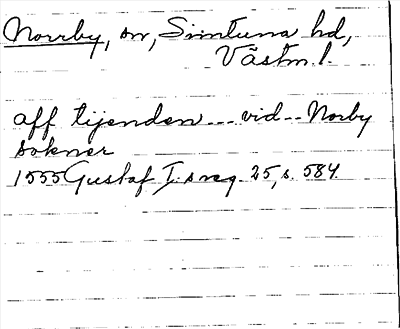 Norrby, sn, Simtuna hd,
Västm. l.
aff tijenden --- vid -- Norby
sokner
1555 Gustaf I:s reg. 25, s. 584.